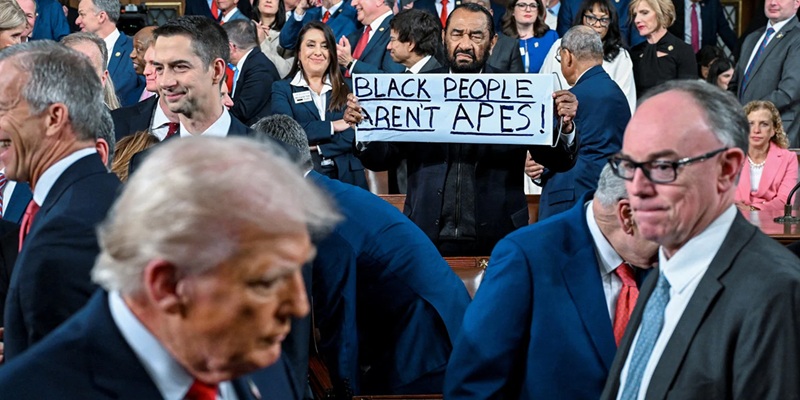 BLACK PEOPLE
AREN'T APES!